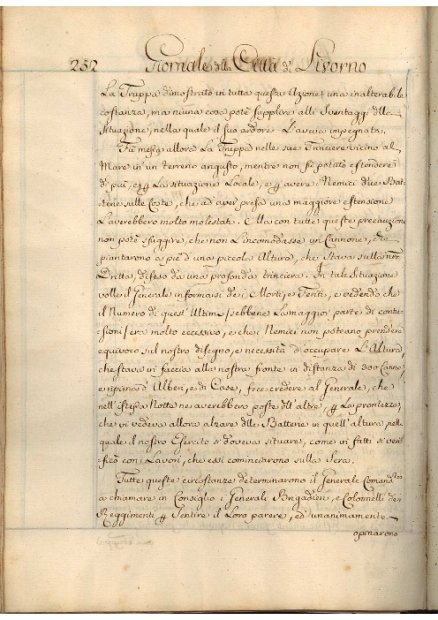 252 Giornale della Città di Livorno
La Truppa dimostrato in tutta questa Azione una inalterabile
costanza, ma niuna cosa potè supplire alli Sventaggi della
Situazione, nella quale il suo ardore L'aveva impegnata.
Fù messa allora La Truppa nelle sue Trinciere vicino al
Mare in un terreno angusto, mentre non si potette estendere
di più, e La Situazione Locale, e avere i Nemici due Bat
terie alle Coste, che ad aver presa una maggiore estensione
L'averebbero molto molestata. Ella con tutte queste precauzioni
non potè sfuggire, che non L'incomodasse un Cannone, che
piantarono a piè d'una piccola Altura, che Stava sulla nra
Dritta, difeso da una profonda trinciera. In tale Situazione
volle il Generale informarsi dei Morti, e Feriti, e vedendo che
il Numero di quest'Ultimi (sebbene La maggior parte di contu-
sioni) era molto eccessivo, e che i Nemici non poteano prendere
equivoco sul nostro disegno, e necessità d'occupare L'Altura,
che stava in faccia alla nostra fronte in distanza di 300 Canne,
e ripiena d'Alberi, e di Case, fece credere al Generale, che
nell'istessa Notte ne averebbero poste dell'altre, La prontezza,
che vi vedeva allora alzare delle Batterie in quell'altura pella
quale il nostro Esercito si doveva situare, come in fatti si veri
ficò con i Lavori, che essi cominciarono sulla Sera.
Tutte queste circostanze determinarono il Generale Comand.te
a chiamare in Consiglio i Generali Brigadieri, e Colonnelli de
Reggimenti Sentire il Loro parere, ed unanimamente
opinarono